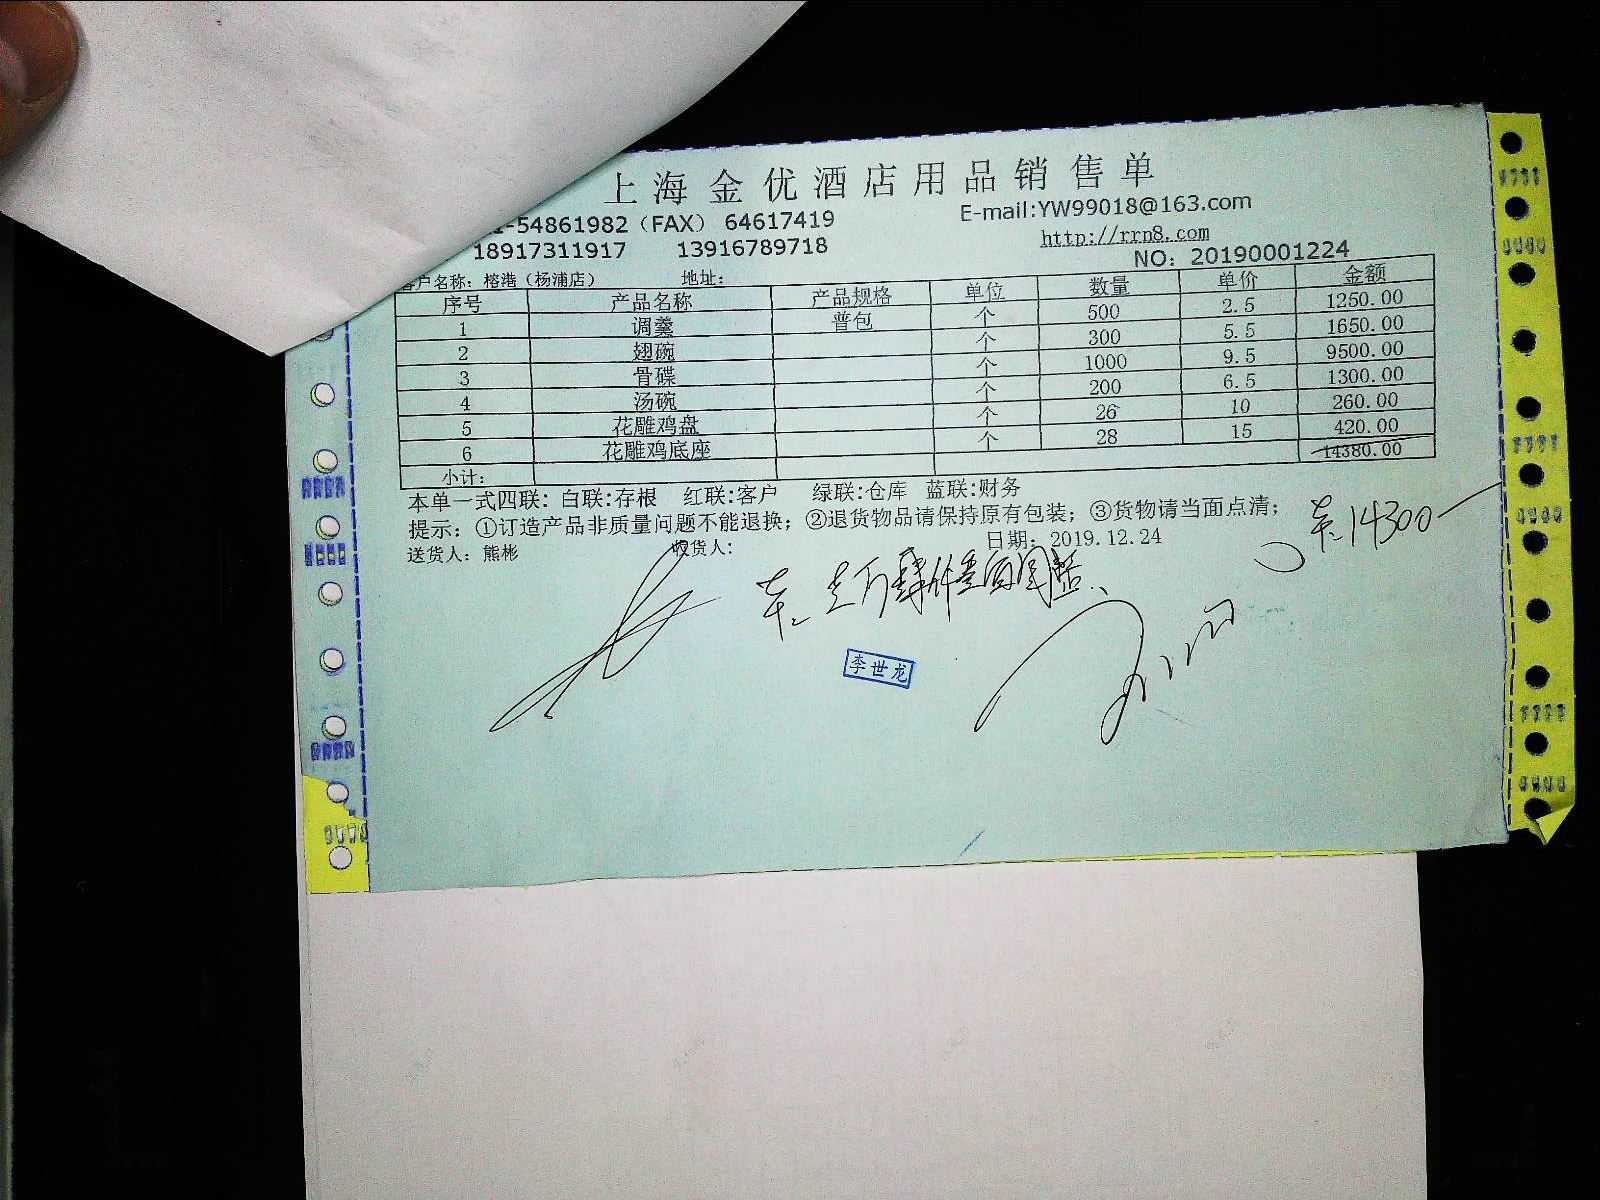 上海金优酒店用品销售单
-54861982（FAX） 64617419 E-mail:YW99018@163.com
18917311917 13916789718 http://rrn8.com
NO：20190001224
客户名称：榕港（杨浦店） 地址：
序号 产品名称 产品规格 单位 数量 单价 金额
1 调羹 普包 个 500 2.5 1250.00
2 翅碗 个 300 5.5 1650.00
3 骨碟 个 1000 9.5 9500.00
4 汤碗 个 200 6.5 1300.00
5 花雕鸡盘 个 26 10 260.00
6 花雕鸡底座 个 28 15 420.00
小计： 14380.00
本单一式四联：白联:存根 红联:客户 绿联:仓库 蓝联:财务
提示：①订造产品非质量问题不能退换；②退货物品请保持原有包装；③货物请当面点清；
送货人：熊彬 收货人： 日期：2019.12.24
14300-
壹万肆仟叁佰圆整
李世龙